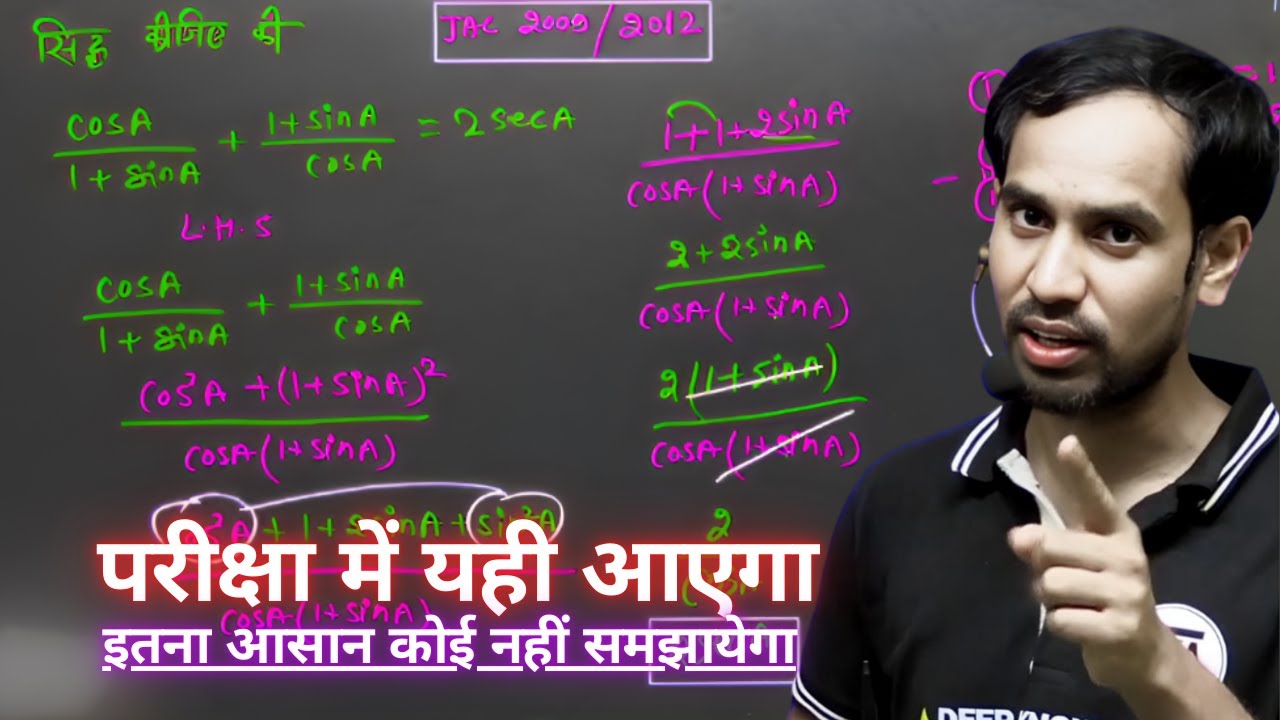 सिद्ध कीजिए की
JAC 2009/2012
cosA/(1+sinA) + (1+sinA)/cosA = 2secA
L.H.S
cosA/(1+sinA) + (1+sinA)/cosA
cos²A + (1+sinA)²
cosA(1+sinA)
cos²A + 1 + 2sinA + sin²A
cosA(1+sinA)
1+1+2sinA
cosA(1+sinA)
2+2sinA
cosA(1+sinA)
2(1+sinA)
cosA(1+sinA)
2
परीक्षा में यही आएगा
इतना आसान कोई नहीं समझायेगा